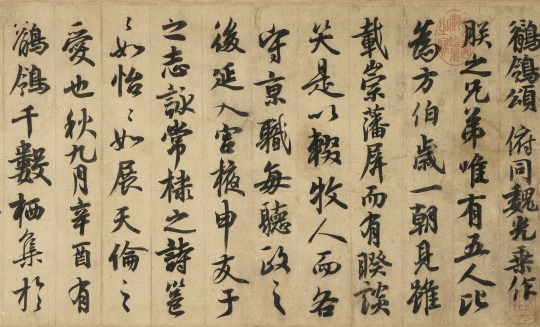 鶺鴒頌 俯同魏光乘作
朕之兄弟唯有五人比
為方伯歲一朝見雖
載崇藩屏而有睽談
笑是以輟牧人而各
守京職每聽政之
後延入宮掖申友于
之志詠常棣之詩邕
邕如怡怡如展天倫之
愛也秋九月辛酉有
鶺鴒千數栖集於